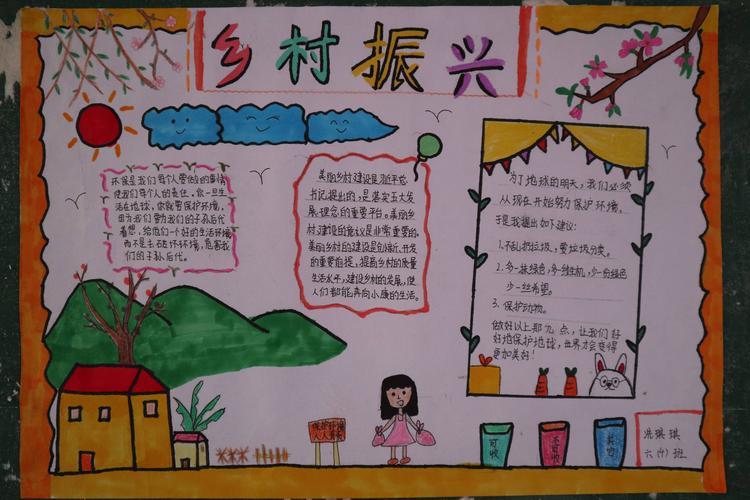 乡村振兴
环保是我们每个人要做的事情
使我们每个人的责任。你一旦生
活在地球，你就要保护环境，
因为我们要为我们的子孙后代
着想，给他们一个好的生活环境
而不是去破坏环境，危害我
们的子孙后代。
美丽乡村建设是习近平总
书记提出的，是落实五大发
展理念的重要平台。美丽乡
村建设的意义是非常重要的。
美丽乡村的建设是创新、开发
的重要前提，提高乡村的质量
生活水平，建设乡村的发展，使
人们都能奔向小康的生活。
为了地球的明天，我们必须
从现在开始努力保护环境。
于是我提出如下建议：
1.不乱扔垃圾，要垃圾分类。
2.多一抹绿色，多一线生机，少一份绿色
少一丝希望。
3.保护动物。
做好以上那几点，让我们好
好地保护地球，世界才会变得
更加美好！
保护环境
人人有责
可收
不可收
其它
洗琪琪
六(1)班